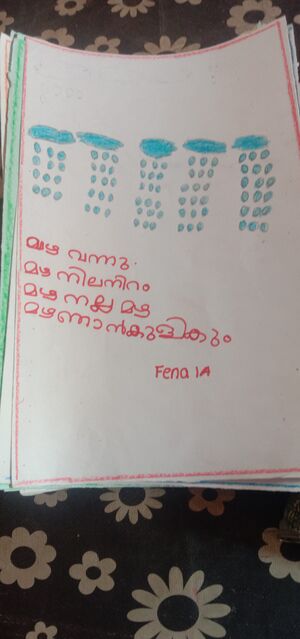 മഴ വന്നു.
മഴ നിലനിറം
മഴ നല്ല മഴ
മഴഞാൻകുളികും
Fena 1A